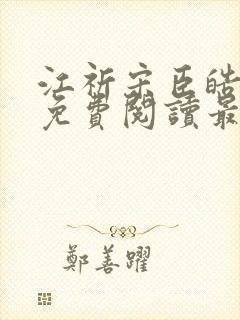 江祈宋臣皓
免費閱讀最
鄭善躍